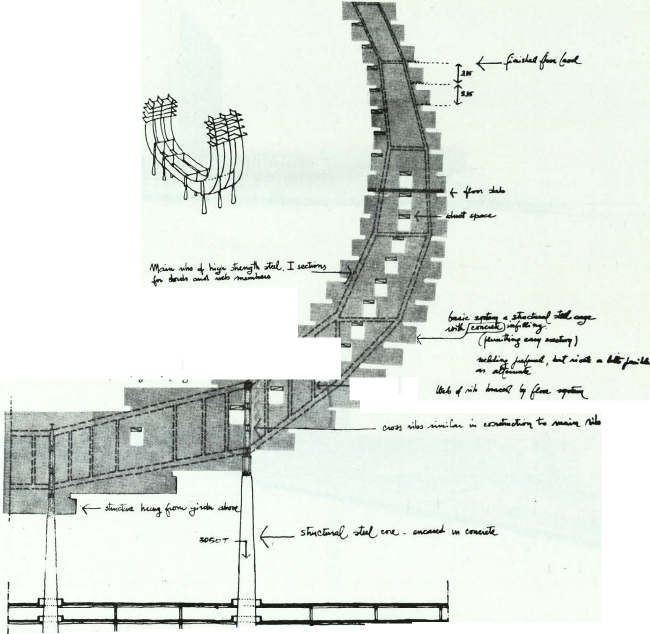 finished floor level
floor slab
duct space
Main ribs of high strength steel. I sections
for chords and web members
basic system a structural steel cage
with concrete infilling
(permitting easy erection)
welding but rivets a
as alternate
Web of rib braced by floor system
cross ribs similar in construction to main ribs
structure hung from girder above
structural steel core - encased in concrete
3050T